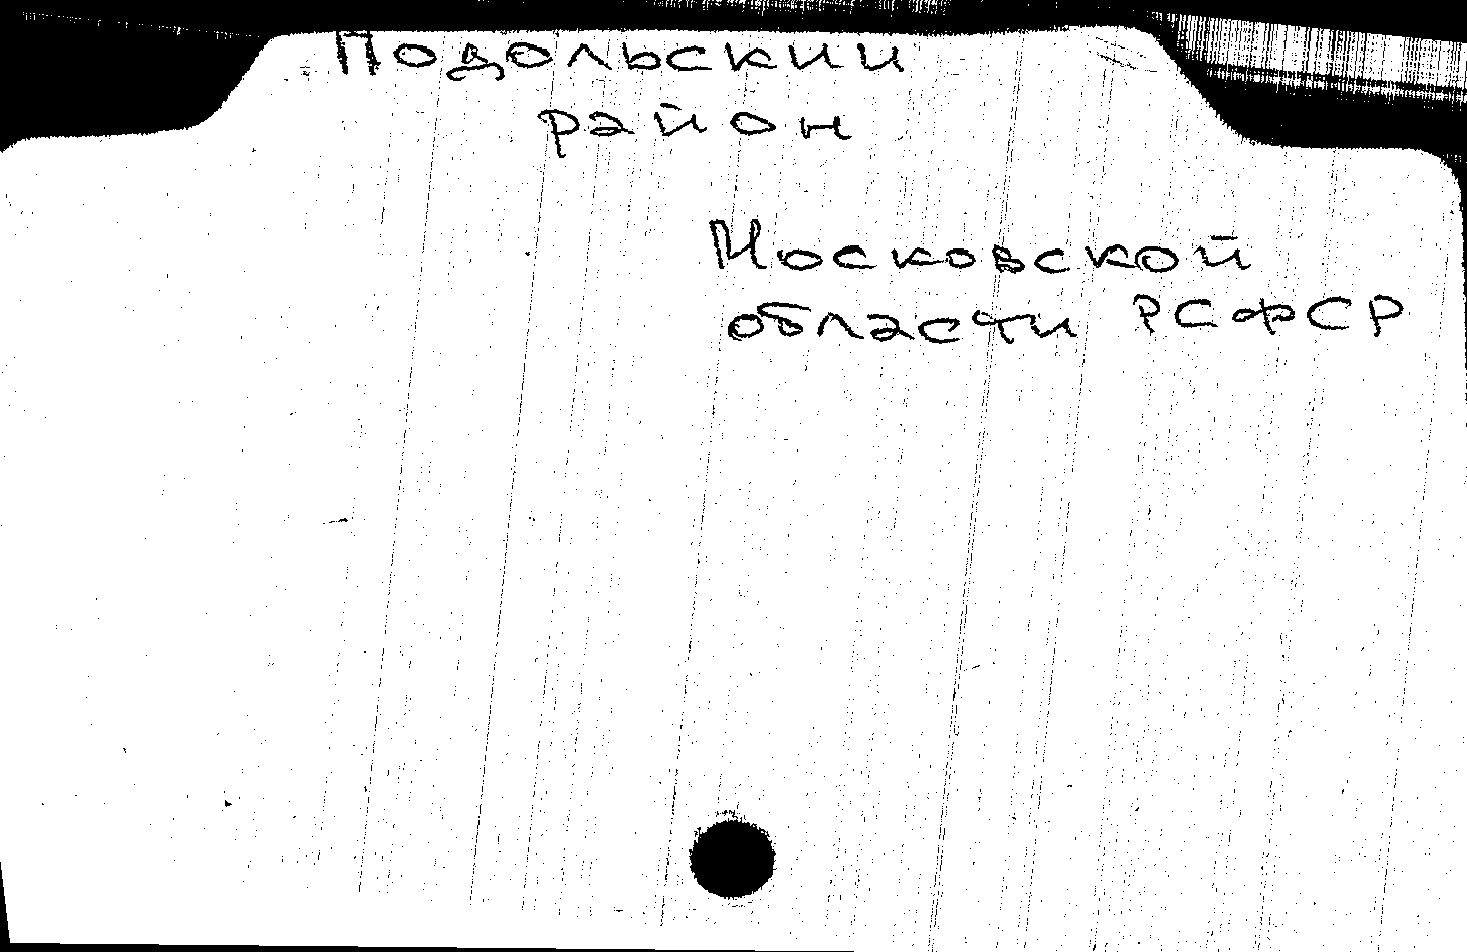 Подольский
район
Московской
области РСФСР